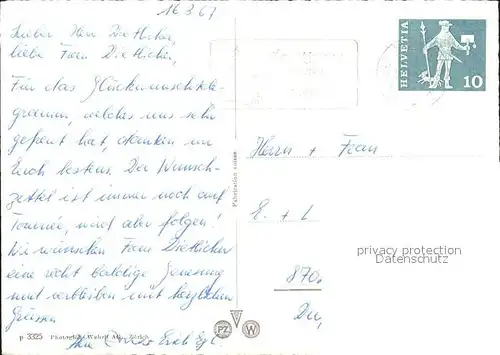 16 3 67
Lieber Herr Dietliker,
liebe Frau Dietliker,
Für das Glückwunschtele-
gramm, welches uns sehr
gefreut hat, danken wir
Euch bestens. Der Wunsch-
zettel ist immer noch auf
Tournée, wird aber folgen!
Wir wünschen Frau Dietliker
eine recht baldige Genesung
und verbleiben mit herzlichen
Grüssen
Erich
p 3325 Photoglob-Wehrli AG., Zürich
Fabrication suisse
PZ W
HELVETIA
10
Herrn + Frau
E. + L
privacy protection
Datenschutz
870